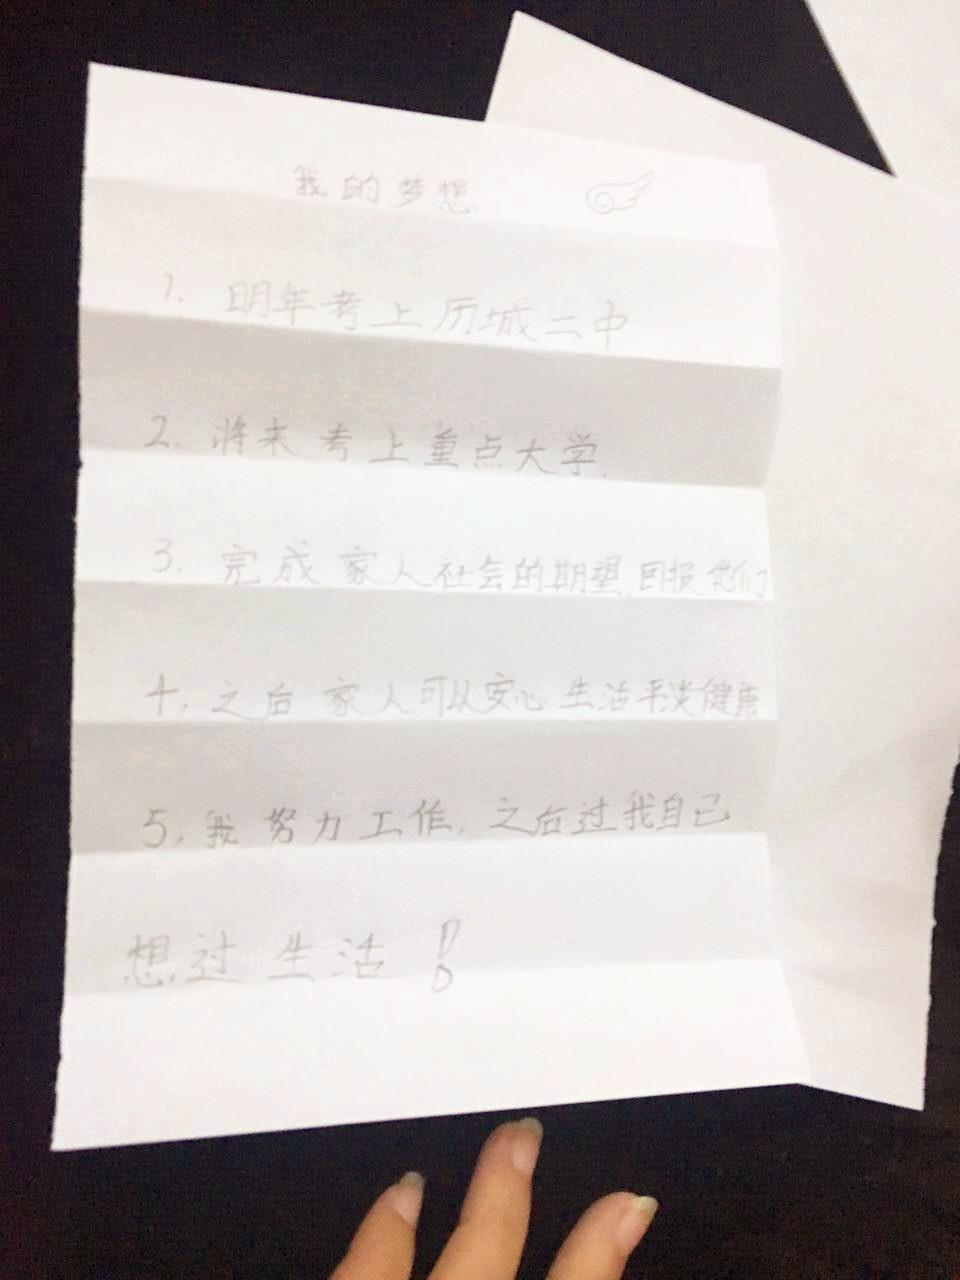 我的梦想
1. 明年考上历城二中
2. 将来考上重点大学.
3. 完成家人社会的期望,回报他们
4. 之后家人可以安心生活平淡健康
5, 我努力工作, 之后过我自己
想过生活!